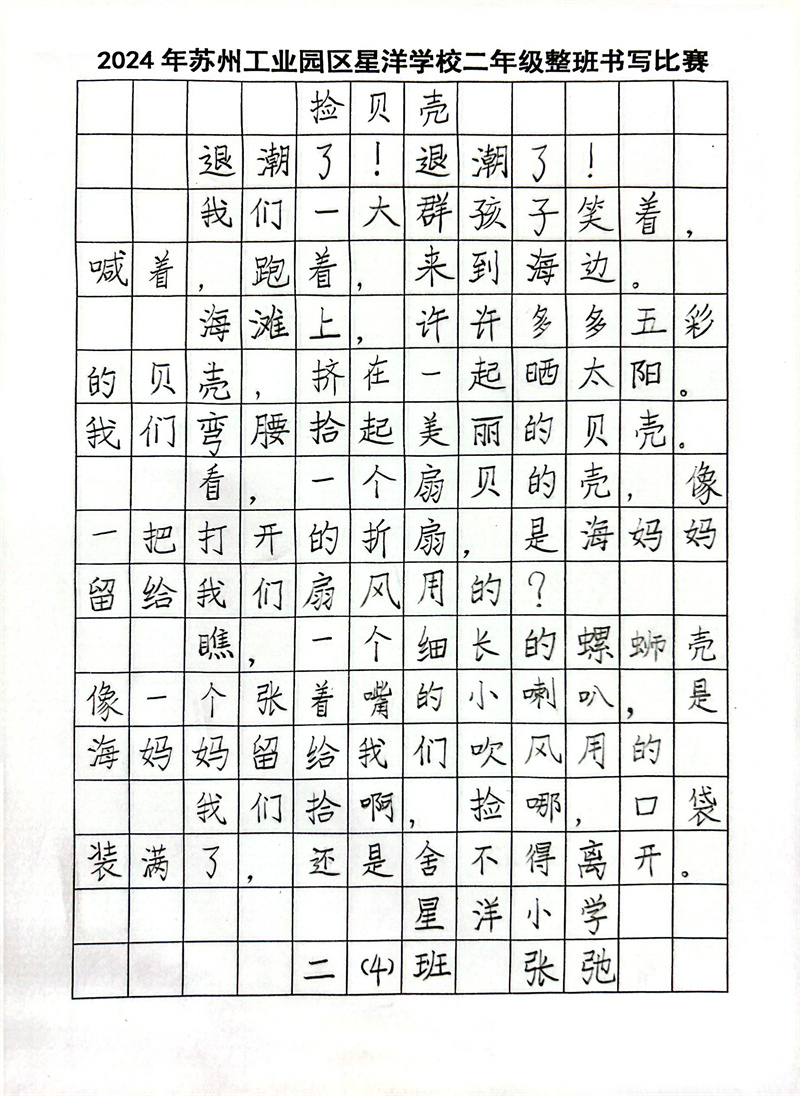 2024年苏州工业园区星洋学校二年级整班书写比赛
捡贝壳
退潮了！退潮了！
我们一大群孩子笑着，
喊着，跑着，来到海边。
海滩上，许许多多五彩
的贝壳，挤在一起晒太阳。
我们弯腰拾起美丽的贝壳。
看，一个扇贝的壳，像
一把打开的折扇，是海妈妈
留给我们扇风用的？
瞧，一个细长的螺蛳壳
像一个张着嘴的小喇叭，是
海妈妈留给我们吹风用的
我们拾啊，捡哪，口袋
装满了，还是舍不得离开。
星洋小学
二（4）班 张弛